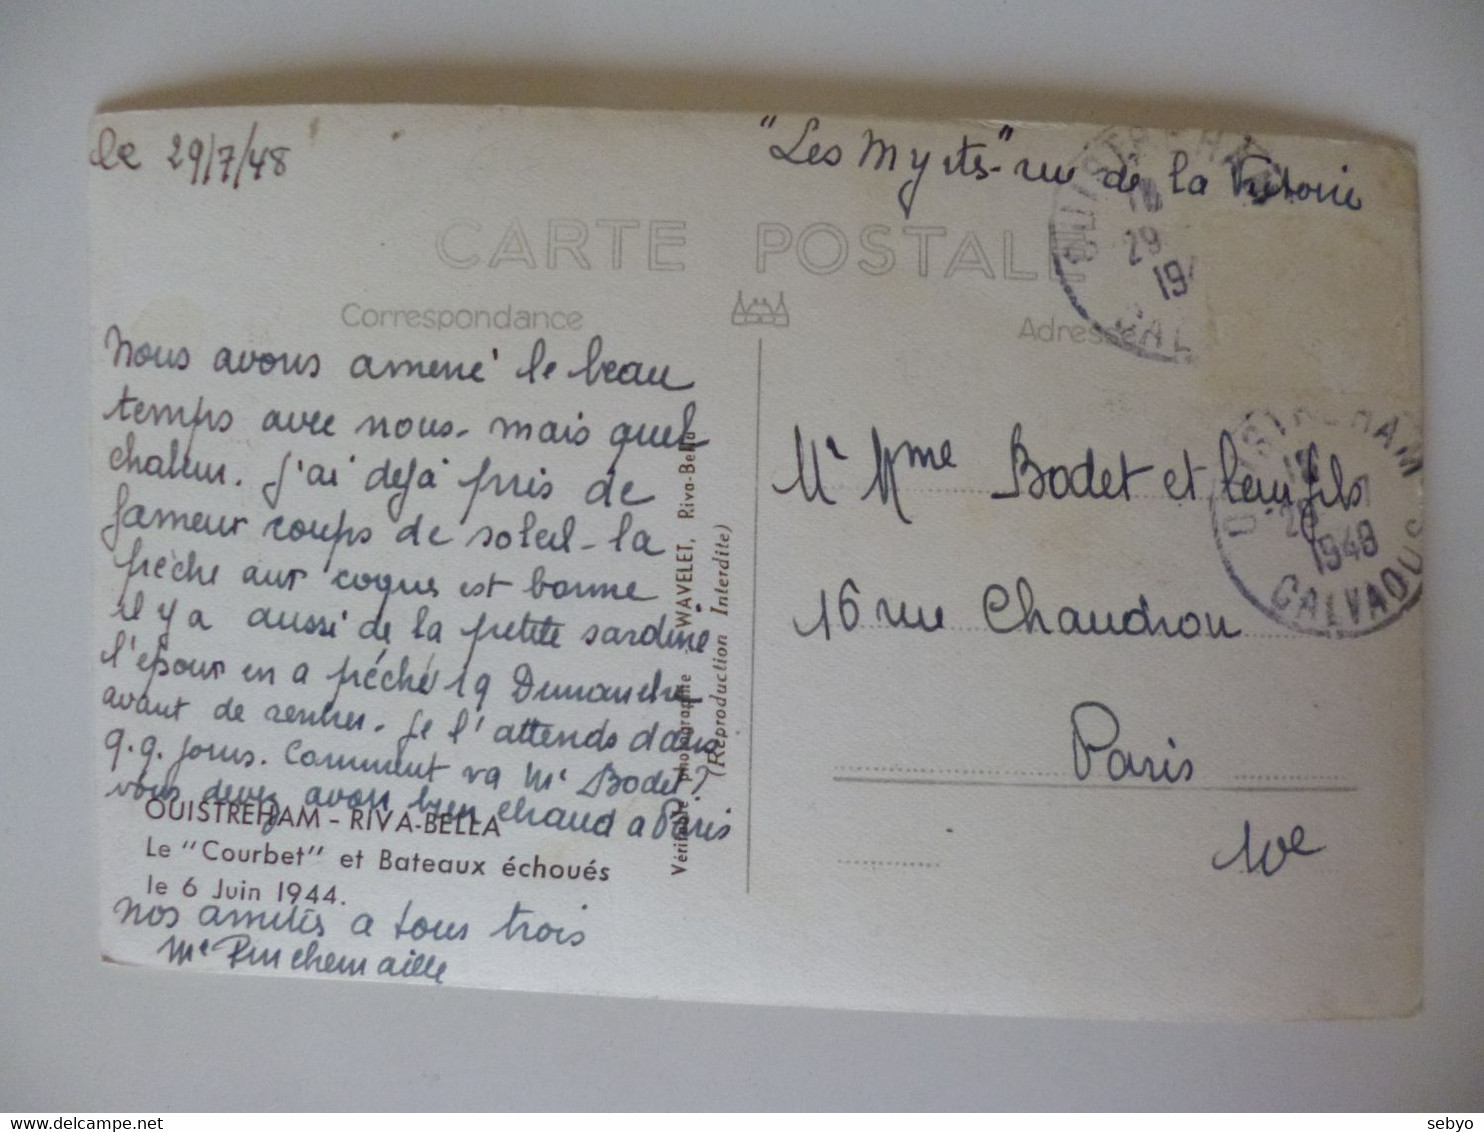 le 29/7/48
"Les Myrtes" rue de la Victoire
CARTE POSTALE
Correspondance
Adresse
OUISTREHAM
29
194
CAL
OUISTREHAM
1948
CALVADOS
Nous avons amené le beau
temps avec nous - mais quel
chaleur. J'ai dejà pris de
fameux coups de soleil - la
pêche aux coques est bonne
il y a aussi de la petite sardine
l'époux en a pêché 19 Dimanche
avant de rentrer. Je l'attends dans
q.q. jours. Comment va Mr Bodet?
vous devez avoir bien chaud a Paris
OUISTREHAM - RIVA-BELLA
Le "Courbet" et Bateaux échoués
le 6 Juin 1944.
nos amitiés a tous trois
Me Pinchemaille
Véritable photographie WAVELET, Riva-Bella
(Reproduction Interdite)
Mr Mme Bodet et leur fils
16 rue Chaudron
Paris
10e
sebyo